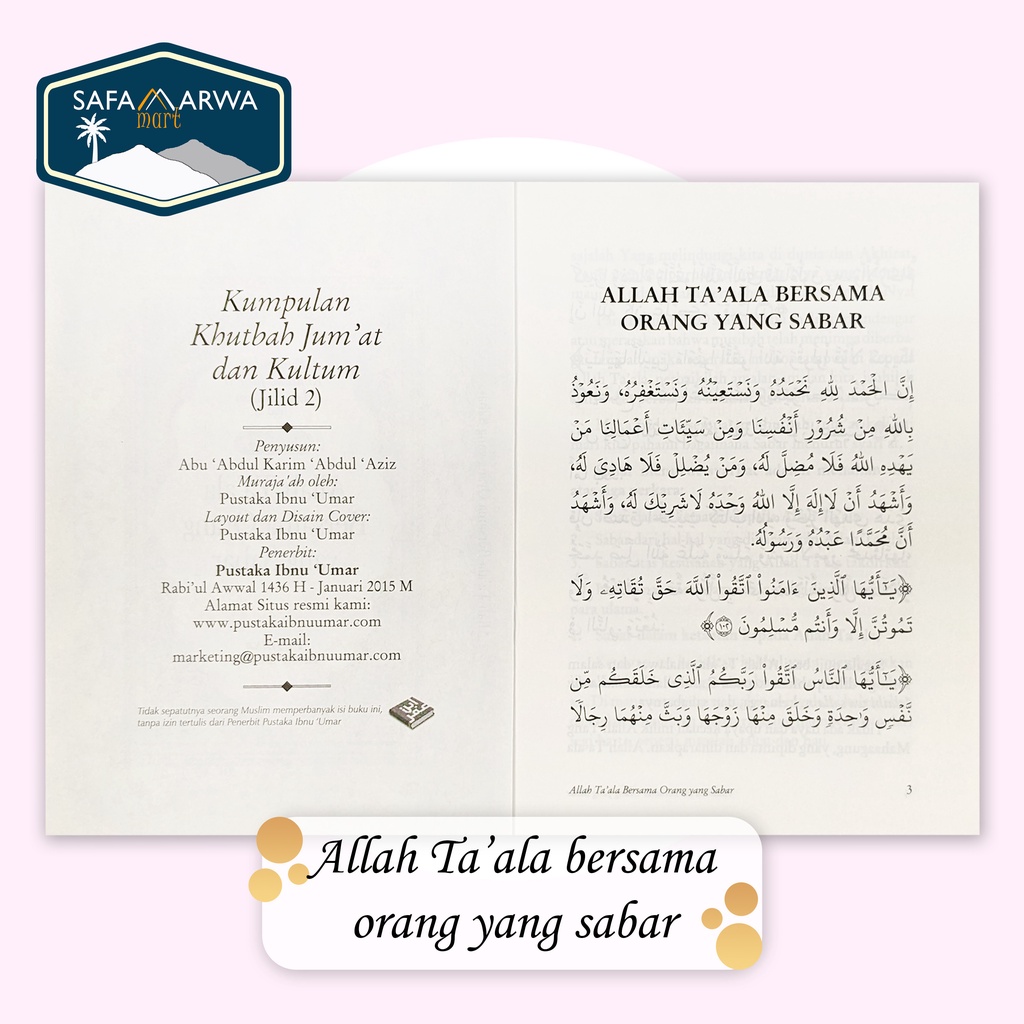 SAFA MARWA
mart
Kumpulan
Khutbah Jum'at
dan Kultum
(Jilid 2)
Penyusun:
Abu 'Abdul Karim 'Abdul 'Aziz
Muraja'ah oleh:
Pustaka Ibnu 'Umar
Layout dan Disain Cover:
Pustaka Ibnu 'Umar
Penerbit:
Pustaka Ibnu 'Umar
Rabi'ul Awwal 1436 H - Januari 2015 M
Alamat Situs resmi kami:
www.pustakaibnuumar.com
E-mail:
marketing@pustakaibnuumar.com
Tidak sepatutnya seorang Muslim memperbanyak isi buku ini,
tanpa izin tertulis dari Penerbit Pustaka Ibnu 'Umar
ALLAH TA'ALA BERSAMA
ORANG YANG SABAR
إِنَّ الْحَمْدَ لِلَّهِ نَحْمَدُهُ وَنَسْتَعِيْنُهُ وَنَسْتَغْفِرُهُ، وَنَعُوْذُ
بِاللهِ مِنْ شُرُوْرِ أَنْفُسِنَا وَمِنْ سَيِّئَاتِ أَعْمَالِنَا مَنْ
يَهْدِهِ اللهُ فَلَا مُضِلَّ لَهُ، وَمَنْ يُضْلِلْ فَلَا هَادِيَ لَهُ،
وَأَشْهَدُ أَنْ لَا إِلَهَ إِلَّا اللهُ وَحْدَهُ لَا شَرِيْكَ لَهُ، وَأَشْهَدُ
أَنَّ مُحَمَّدًا عَبْدُهُ وَرَسُوْلُهُ.
﴿يَـٰٓأَيُّهَا ٱلَّذِينَ ءَامَنُوا۟ ٱتَّقُوا۟ ٱللَّهَ حَقَّ تُقَاتِهِۦ وَلَا
تَمُوتُنَّ إِلَّا وَأَنتُم مُّسْلِمُونَ ١٠٢﴾
﴿يَـٰٓأَيُّهَا ٱلنَّاسُ ٱتَّقُوا۟ رَبَّكُمُ ٱلَّذِى خَلَقَكُم مِّن
نَّفْسٍ وَٰحِدَةٍ وَخَلَقَ مِنْهَا زَوْجَهَا وَبَثَّ مِنْهُمَا رِجَالًا
Allah Ta'ala Bersama Orang yang Sabar
3
Allah Ta'ala bersama
orang yang sabar